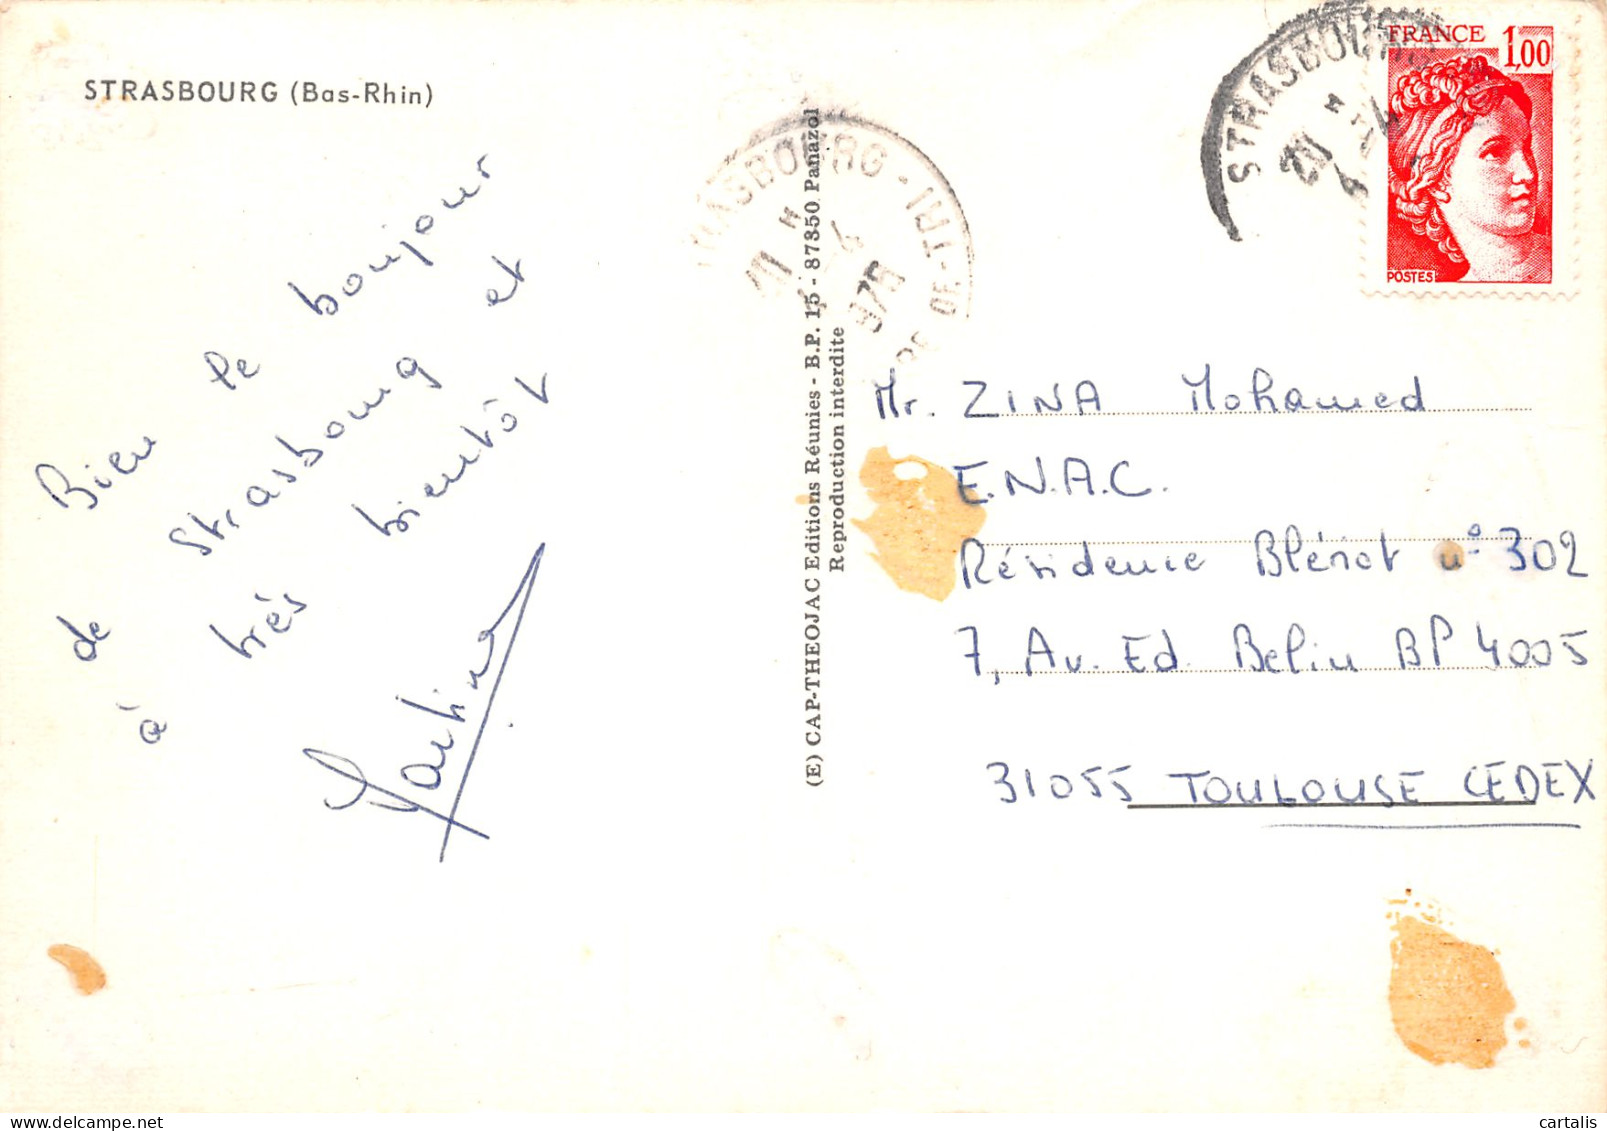 STRASBOURG (Bas-Rhin)
Bien le bonjour
de Strasbourg et
à très bientôt
Martine
(E) CAP-THEOJAC Editions Réunies - B.P. 15 - 87350 Panazol
Reproduction interdite
STRASBOURG
FRANCE 1,00
POSTES
Mr. ZINA Mohamed
E.N.A.C.
Résidence Blériot n° 302
7, Av. Ed. Belin BP 4005
31055 TOULOUSE CEDEX
www.cartalis.com
cartalis